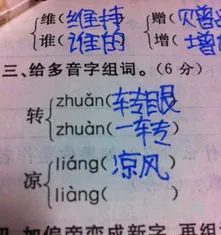 维(维持 赠(赠
谁(谁的 增(增
三、给多音字组词。(6分)
转 zhuǎn(转眼)
zhuàn(一转)
凉 liáng(凉风)
liàng( )
加偏旁变成新字,再组